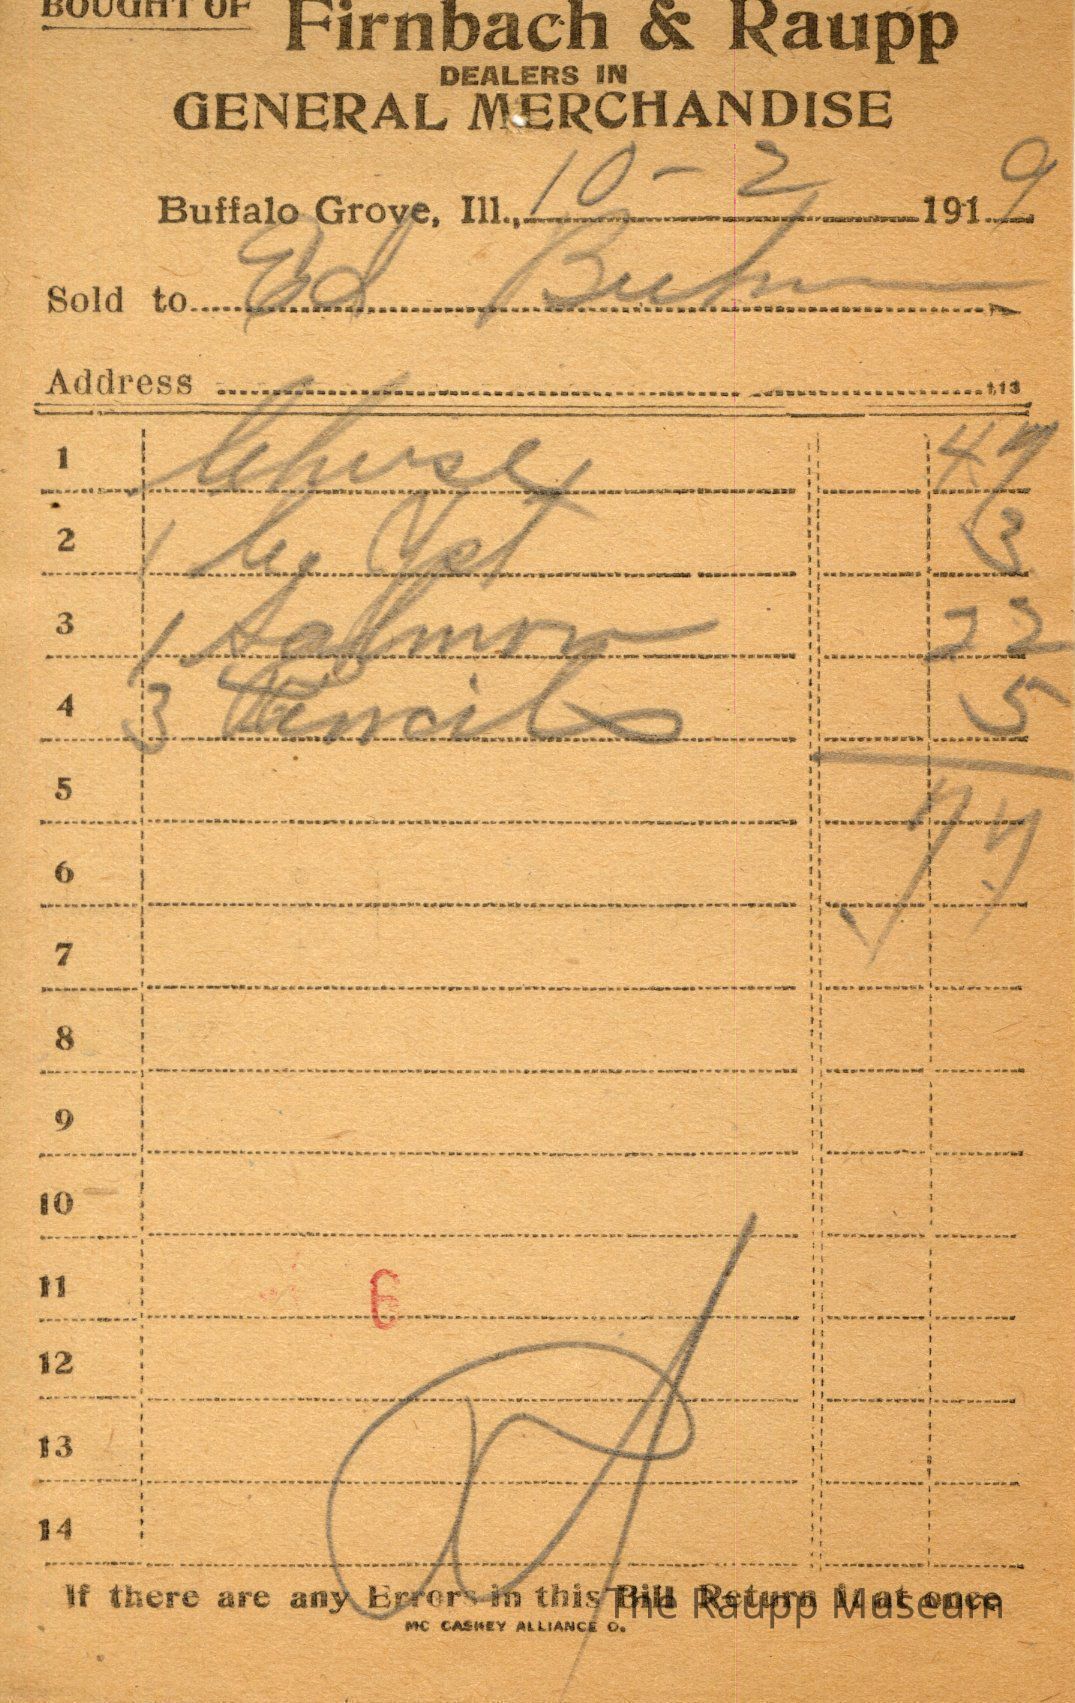 BOUGHT OF Firnbach & Raupp
DEALERS IN
GENERAL MERCHANDISE
Buffalo Grove, Ill., 10-2 1919
Sold to Ed
Address 113
1 Cheese 47
2 1 3
3 1 Salmon 22
4 3 Pencils 5
5
6 77
7
8
9
10
11 6
12
13
14
If there are any Errors in this Bill Return it at once
The Raupp Museum
MC CASKEY ALLIANCE O.